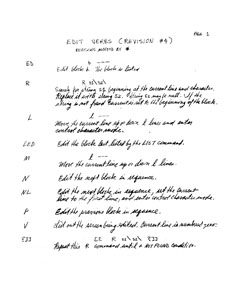 PAGE 1
EDIT VERBS (REVISION #4)
REVISIONS MARKED BY *
ED b ----
Edit block b. The block is listed
R R s1\s2\
Search for string s1 beginning at the current line and character.
Replace it with string s2. String s2 may be null. If the
string is not found the current is set to the beginning of the block.
L l ----
Move the current line up or down l lines and enter
control character mode.
LED Edit the block last listed by the LIST command.
M l ----
Move the current line up or down l lines.
N Edit the next block in sequence.
NL Edit the next block in sequence, set the current
line to the first line, and enter control character mode.
P Edit the previous block in sequence.
V list out the screen being edited. Current line is numbered zero.
E]] [[ R s1\s2\ E]]
Repeat this R command until a not found condition.